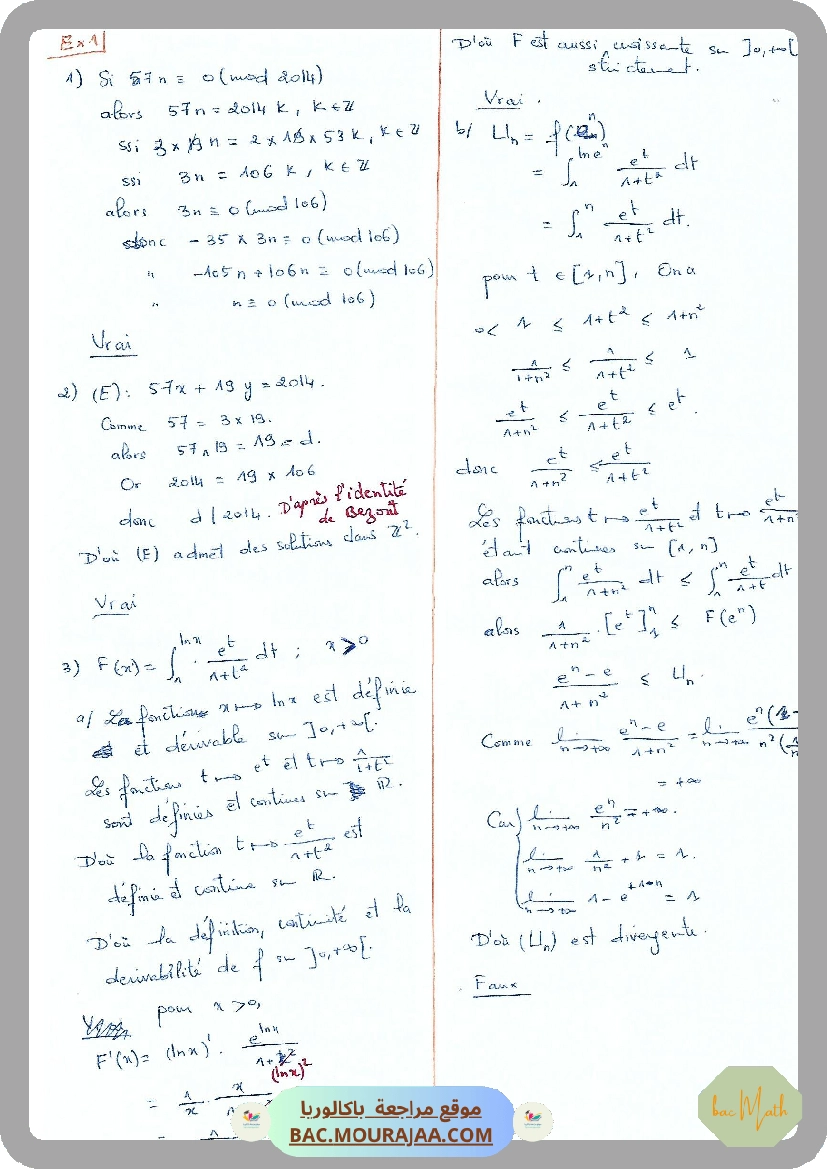 Ex1
1) Si 57n ≡ 0 (mod 2014)
alors 57n = 2014 k, k∈ℤ
ssi 3 x 19 n = 2 x 19 x 53 k, k∈ℤ
ssi 3n = 106 k, k∈ℤ
alors 3n ≡ 0 (mod 106)
donc -35 x 3n ≡ 0 (mod 106)
" -105n + 106n ≡ 0 (mod 106)
" n ≡ 0 (mod 106)
Vrai
2) (E): 57x + 19y = 2014.
Comme 57 = 3 x 19.
alors 57∧19 = 19 = d.
Or 2014 = 19 x 106
donc d | 2014. D'après l'identité
de Bezout
D'où (E) admet des solutions dans ℤ².
Vrai
3) F(x) = ∫₁^{ln x} e^t/(1+t²) dt ; x > 0
a/ La fonction x ↦ ln x est définie
et dérivable sur ]0,+∞[.
Les fonctions t ↦ e^t et t ↦ 1/(1+t²)
sont définies et continues sur ℝ.
D'où la fonction t ↦ e^t/(1+t²) est
définie et continue sur ℝ.
D'où la définition, continuité et la
derivabilité de f sur ]0,+∞[.
pour x > 0,
F'(x) = (ln x)' . e^{ln x}/(1+(ln x)²)
= 1/x . x/
=
D'où F est aussi croissante sur ]0,+∞[
strictement.
Vrai.
b/ Un = f(e^n)
= ∫₁^{ln e^n} e^t/(1+t²) dt
= ∫₁^n e^t/(1+t²) dt.
pour t ∈ [1,n], On a
0 < 1 ≤ 1+t² ≤ 1+n²
1/(1+n²) ≤ 1/(1+t²) ≤ 1
e^t/(1+n²) ≤ e^t/(1+t²) ≤ e^t.
donc e^t/(1+n²) ≤ e^t/(1+t²)
Les fonctions t ↦ e^t/(1+t²) et t ↦ e^t/(1+n²
étant continues sur [1,n]
alors ∫₁^n e^t/(1+n²) dt ≤ ∫₁^n e^t/(1+t dt
alors 1/(1+n²) . [e^t]₁^n ≤ F(e^n)
(e^n - e)/(1+n²) ≤ Un.
Comme lim n→+∞ (e^n - e)/(1+n²) = lim n→+∞ e^n(1-/n²(1/
= +∞
Car { lim n→+∞ e^n/n² = +∞.
lim n→+∞ 1/n² + 1 = 1.
lim n→+∞ 1 - e^{1-n} = 1
D'où (Un) est divergente.
Faux
موقع مراجعة باكالوريا
BAC.MOURAJAA.COM
bac Math